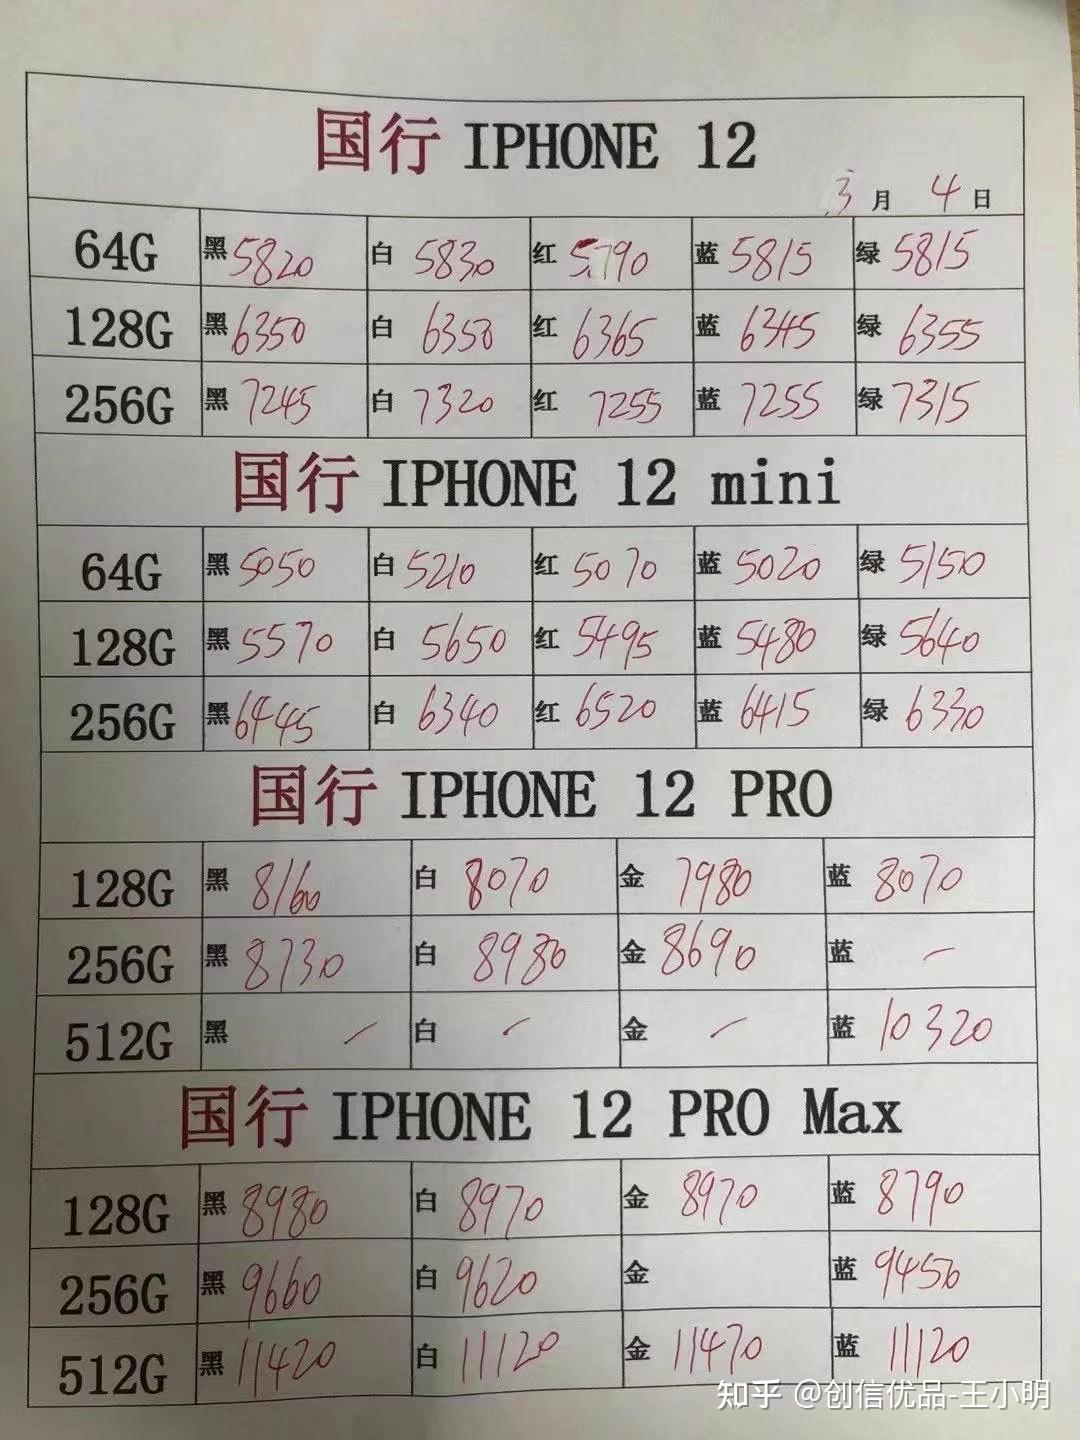 国行 IPHONE 12
3月 4日
64G 黑 5820 白 5830 红 5790 蓝 5815 绿 5815
128G 黑 6350 白 6350 红 6365 蓝 6345 绿 6355
256G 黑 7245 白 7320 红 7255 蓝 7255 绿 7315
国行 IPHONE 12 mini
64G 黑 5050 白 5210 红 5070 蓝 5020 绿 5150
128G 黑 5570 白 5650 红 5495 蓝 5480 绿 5640
256G 黑 6445 白 6340 红 6520 蓝 6415 绿 6330
国行 IPHONE 12 PRO
128G 黑 8160 白 8070 金 7980 蓝 8070
256G 黑 8730 白 8980 金 8690 蓝 -
512G 黑 - 白 - 金 - 蓝 10320
国行 IPHONE 12 PRO Max
128G 黑 8980 白 8970 金 8970 蓝 8790
256G 黑 9660 白 9620 金 蓝 9450
512G 黑 11420 白 11120 金 11470 蓝 11120
知乎 @创信优品-王小明